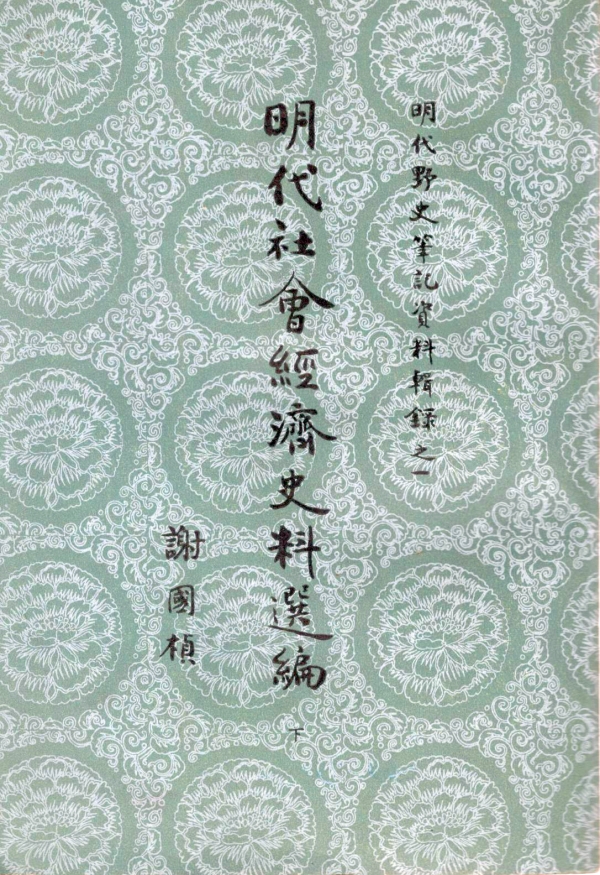 明代野史筆記資料輯錄之一
明代社會經濟史料選編
下
謝國楨